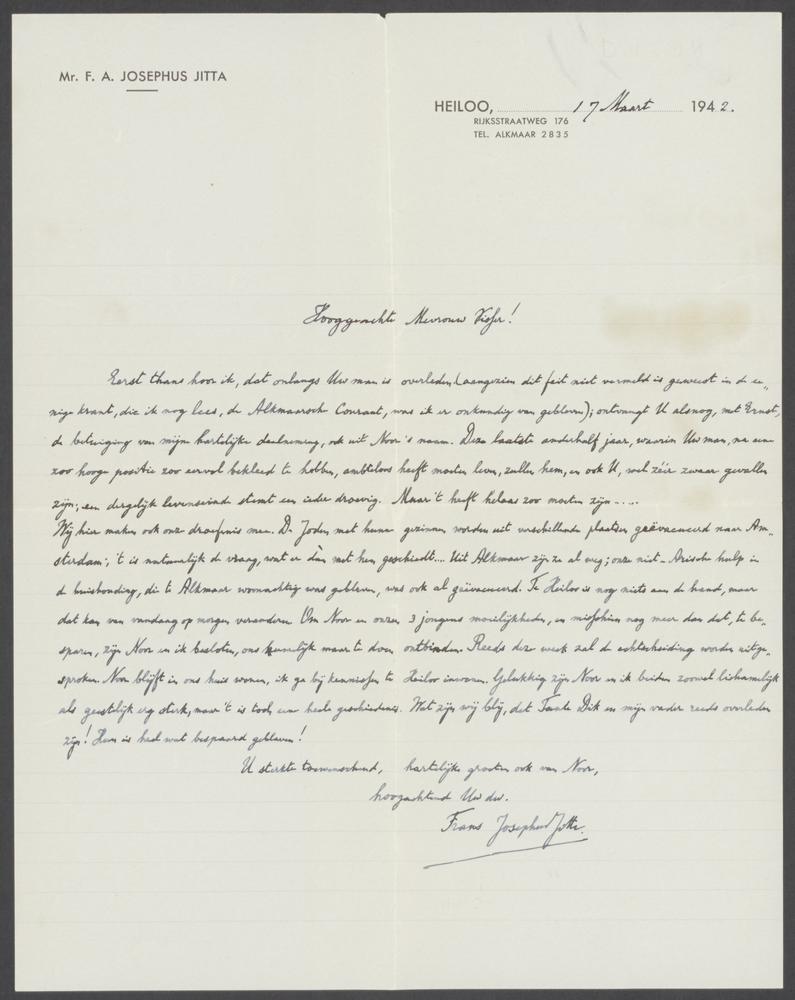 Mr. F. A. JOSEPHUS JITTA
HEILOO, 17 Maart 1942.
RIJKSSTRAATWEG 176
TEL. ALKMAAR 2835
Hooggeachte Mevrouw Visser!
Eerst thans hoor ik, dat onlangs Uw man is overleden (aangezien dit feit niet vermeld is geweest in de ee„
nige krant, die ik nog lees, de Alkmaarsche Courant, was ik er onkundig van gebleven); ontvangt U alsnog, met Ernst,
de betuiging van mijn hartelijke deelneming, ook uit Noor's naam. Deze laatste anderhalf jaar, waarin Uw man, na een
zoo hooge positie zoo eervol bekleed te hebben, ambteloos heeft moeten leven, zullen hem, en ook U, wel zéér zwaar gevallen
zijn; een dergelijk levenseinde stemt een ieder droevig. Maar 't heeft helaas zoo moeten zijn.....
Wij hier maken ook onze droefenis mee. De Joden met hunne gezinnen worden uit verschillende plaatsen geëvacueerd naar Am„
sterdam; 't is natuurlijk de vraag, wat er dàn met hen geschiedt.... Uit Alkmaar zijn ze al weg; onze niet-Arische hulp in
de huishouding, die te Alkmaar woonachtig was gebleven, was ook al geëvacueerd. Te Heiloo is nog niets aan de hand, maar
dat kan van vandaag op morgen veranderen. Om Noor en onzen 3 jongens moeilijkheden, en misschien nog meer dan dat, te be„
sparen, zijn Noor en ik besloten, ons huwelijk maar te doen ontbinden. Reeds deze week zal de echtscheiding worden uitge„
sproken. Noor blijft in ons huis wonen, ik ga bij kennissen te Heiloo inwonen. Gelukkig zijn Noor en ik beiden zoowel lichamelijk
als geestelijk erg sterk, maar 't is toch een heele geschiedenis. Wat zijn wij blij, dat Tante Dik en mijn vader reeds overleden
zijn! Hun is heel wat bespaard gebleven!
U sterkte toewenschend, hartelijke groeten ook van Noor,
hoogachtend Uw dw.
Frans Josephus Jitta.